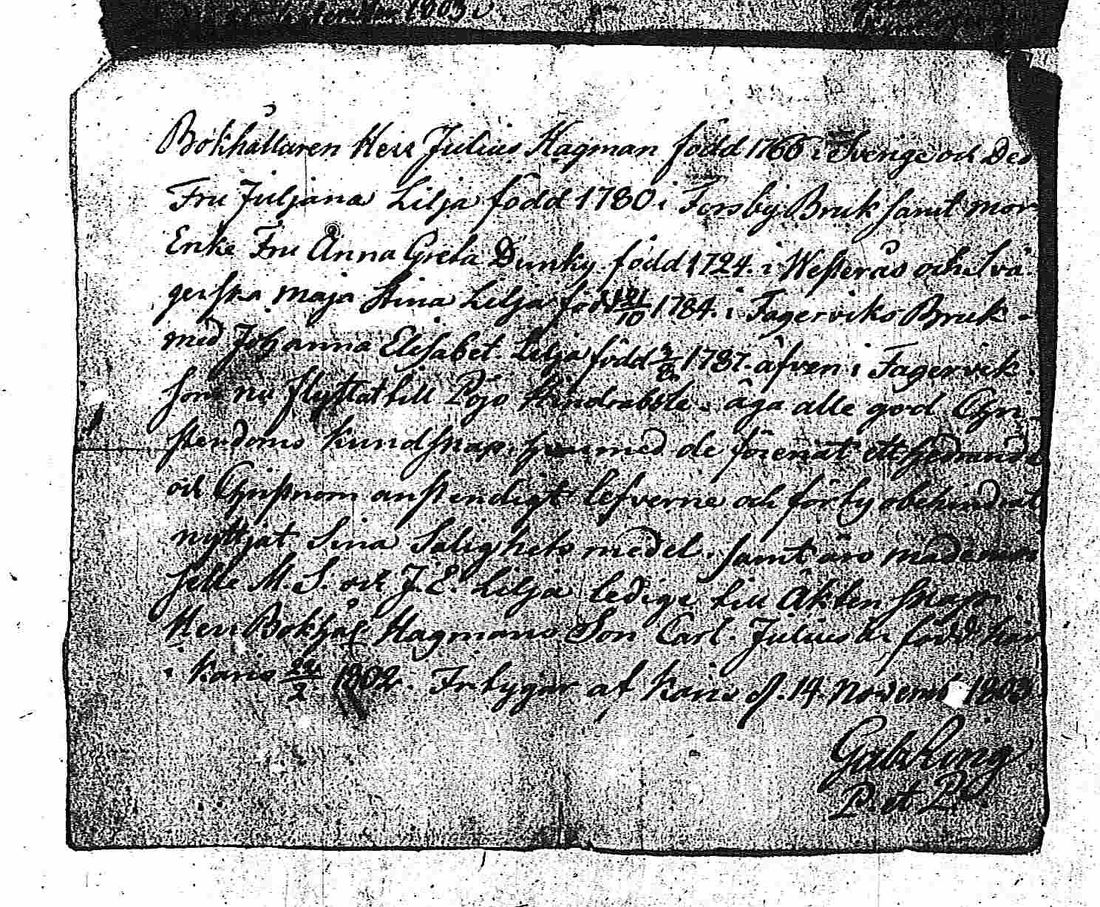 1803
Bokhållaren Herr Julius Hagman född 1765 i Sverige och Des
Fru Juljana Lilja född 1780 i Forsby Bruk samt mor
Enke Fru Anna Greta Dunky född 1724 i Westerås och Svä
gerska Maja Stina Lilja född 21/10 1784. i Fagerviks Bruk
med Johanna Elisabet Lilja född 1787. äfven i Fagervik
som nu flyttat till Pojo äga alle god Chri
stendoms Kundskap. med de förenat ett
och Christnom anstendigt lefverne och
nyttjat Sina Salighets medel. samt äro
selle M. S. och J. E. Lilja ledige till Äktenskap.
Herr Bokhål Hagmans Son Carl. Julius är född här
i Karis 1802. Intygar af Karis d. 14 Novemb 1803
Gab Ring
P. et P.